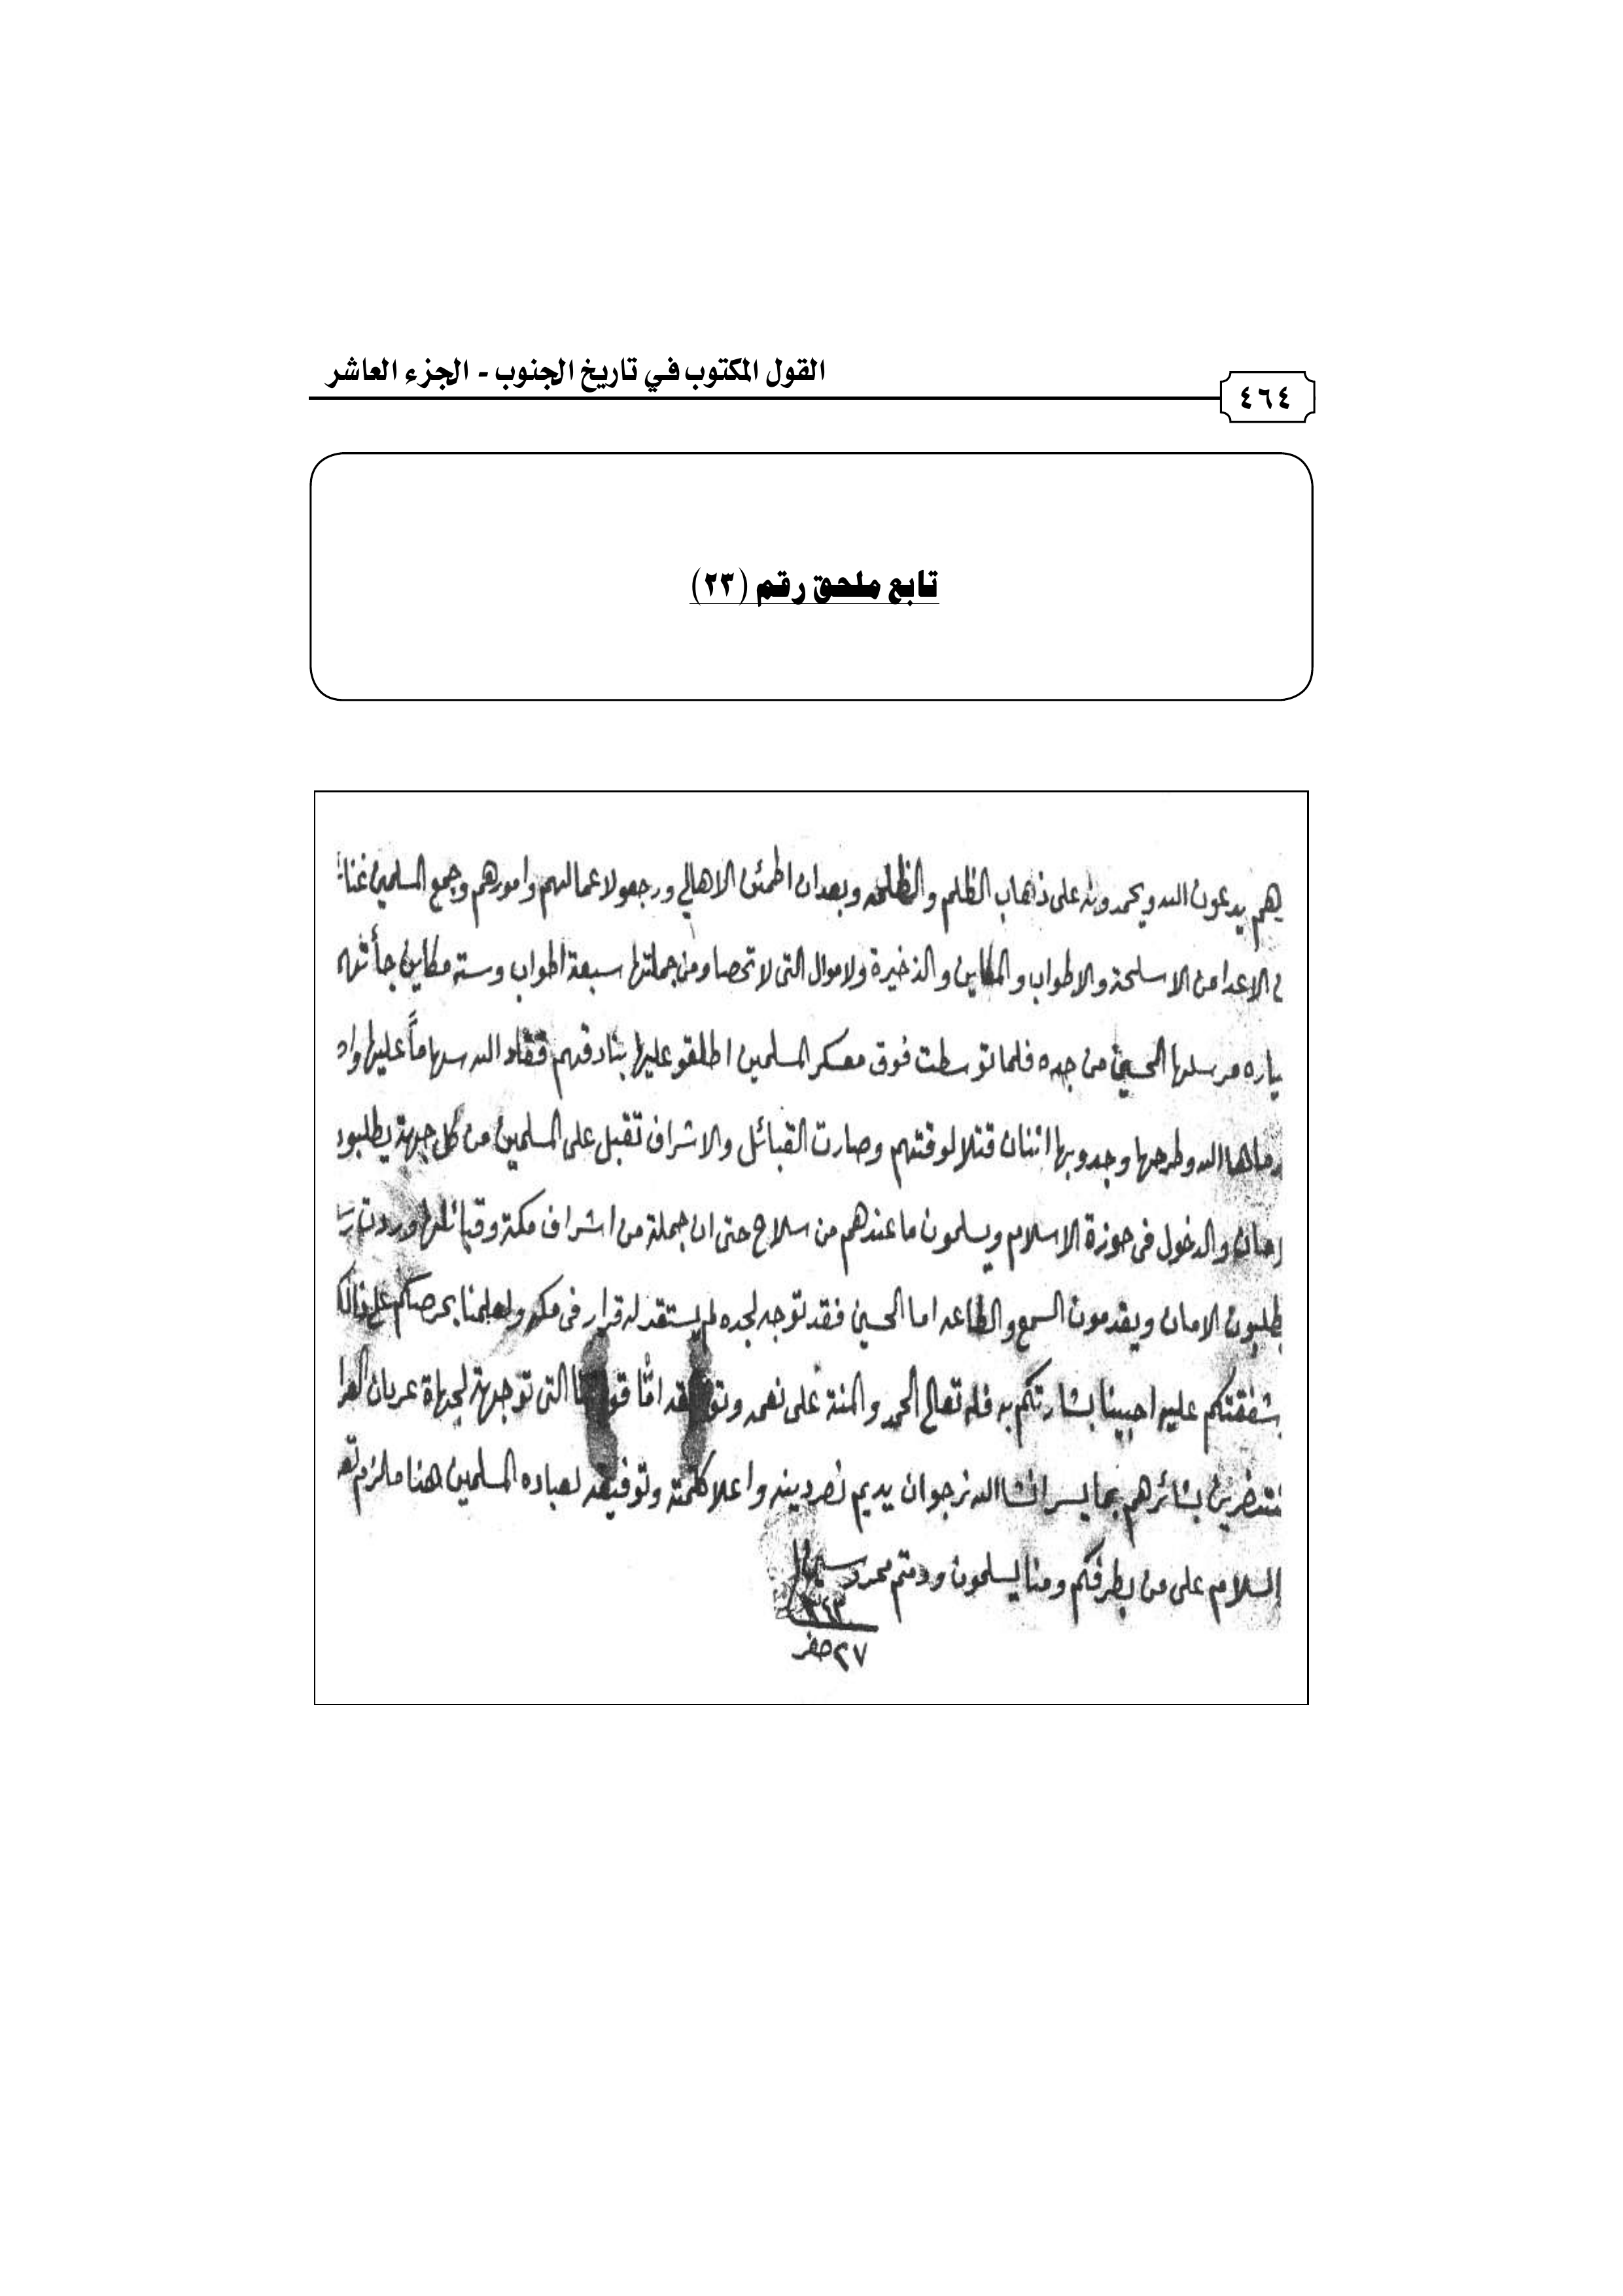 القول المكتوب في تاريخ الجنوب - الجزء العاشر
٤٦٤
تابع ملحق رقم (٢٣)
يدعون الله ويحمدونه على ذهاب الظلم والظلمه وبعد ان اطمئن الاهالي ورجعو لاعمالهم وامورهم وجمع المسلمين غنائ
الاعدا من الاسلحة والاطواب والمكاين والذخيرة ولاموال التى لاتحصا ومن جملتها سبعة اطواب وسته مكاين جأتهم
ياره مرسلها الحسين من جده فلما توسطت فوق معسكر المسلمين اطلقو عليها بنادقهم فقاد الله سهاماً عليها واد
الله وطرحها وجدوبها اثنان قتلا لوقتهم وصارت القبائل والاشراف تقبل على المسلمين من كل جهة يطلبو
والدخول فى حوزة الاسلام ويسلمون ما عندهم من سلاح حتى ان جملة من اشراف مكة وقبائلها وردت
يطلبون الامان ويقدمون السمع والطاعه اما الحسين فقد توجه لجده لم يستقد له قرار فى مكه ولعلمنا بحرصكم على
شفقتكم عليه احببنا بشارتكم به فله تعالى الحمد والمنة على نعمه امّا التى توجهة لجهاة عربان
بشائرهم بما يسر انشا الله نرجوان يديم نصر دينه واعلا كلمته وتوفيقه لعباده المسلمين هنا مالزم
السلام على من بطرفكم ومنا يسلمون ودمتم محروسين
٢٧ صفر